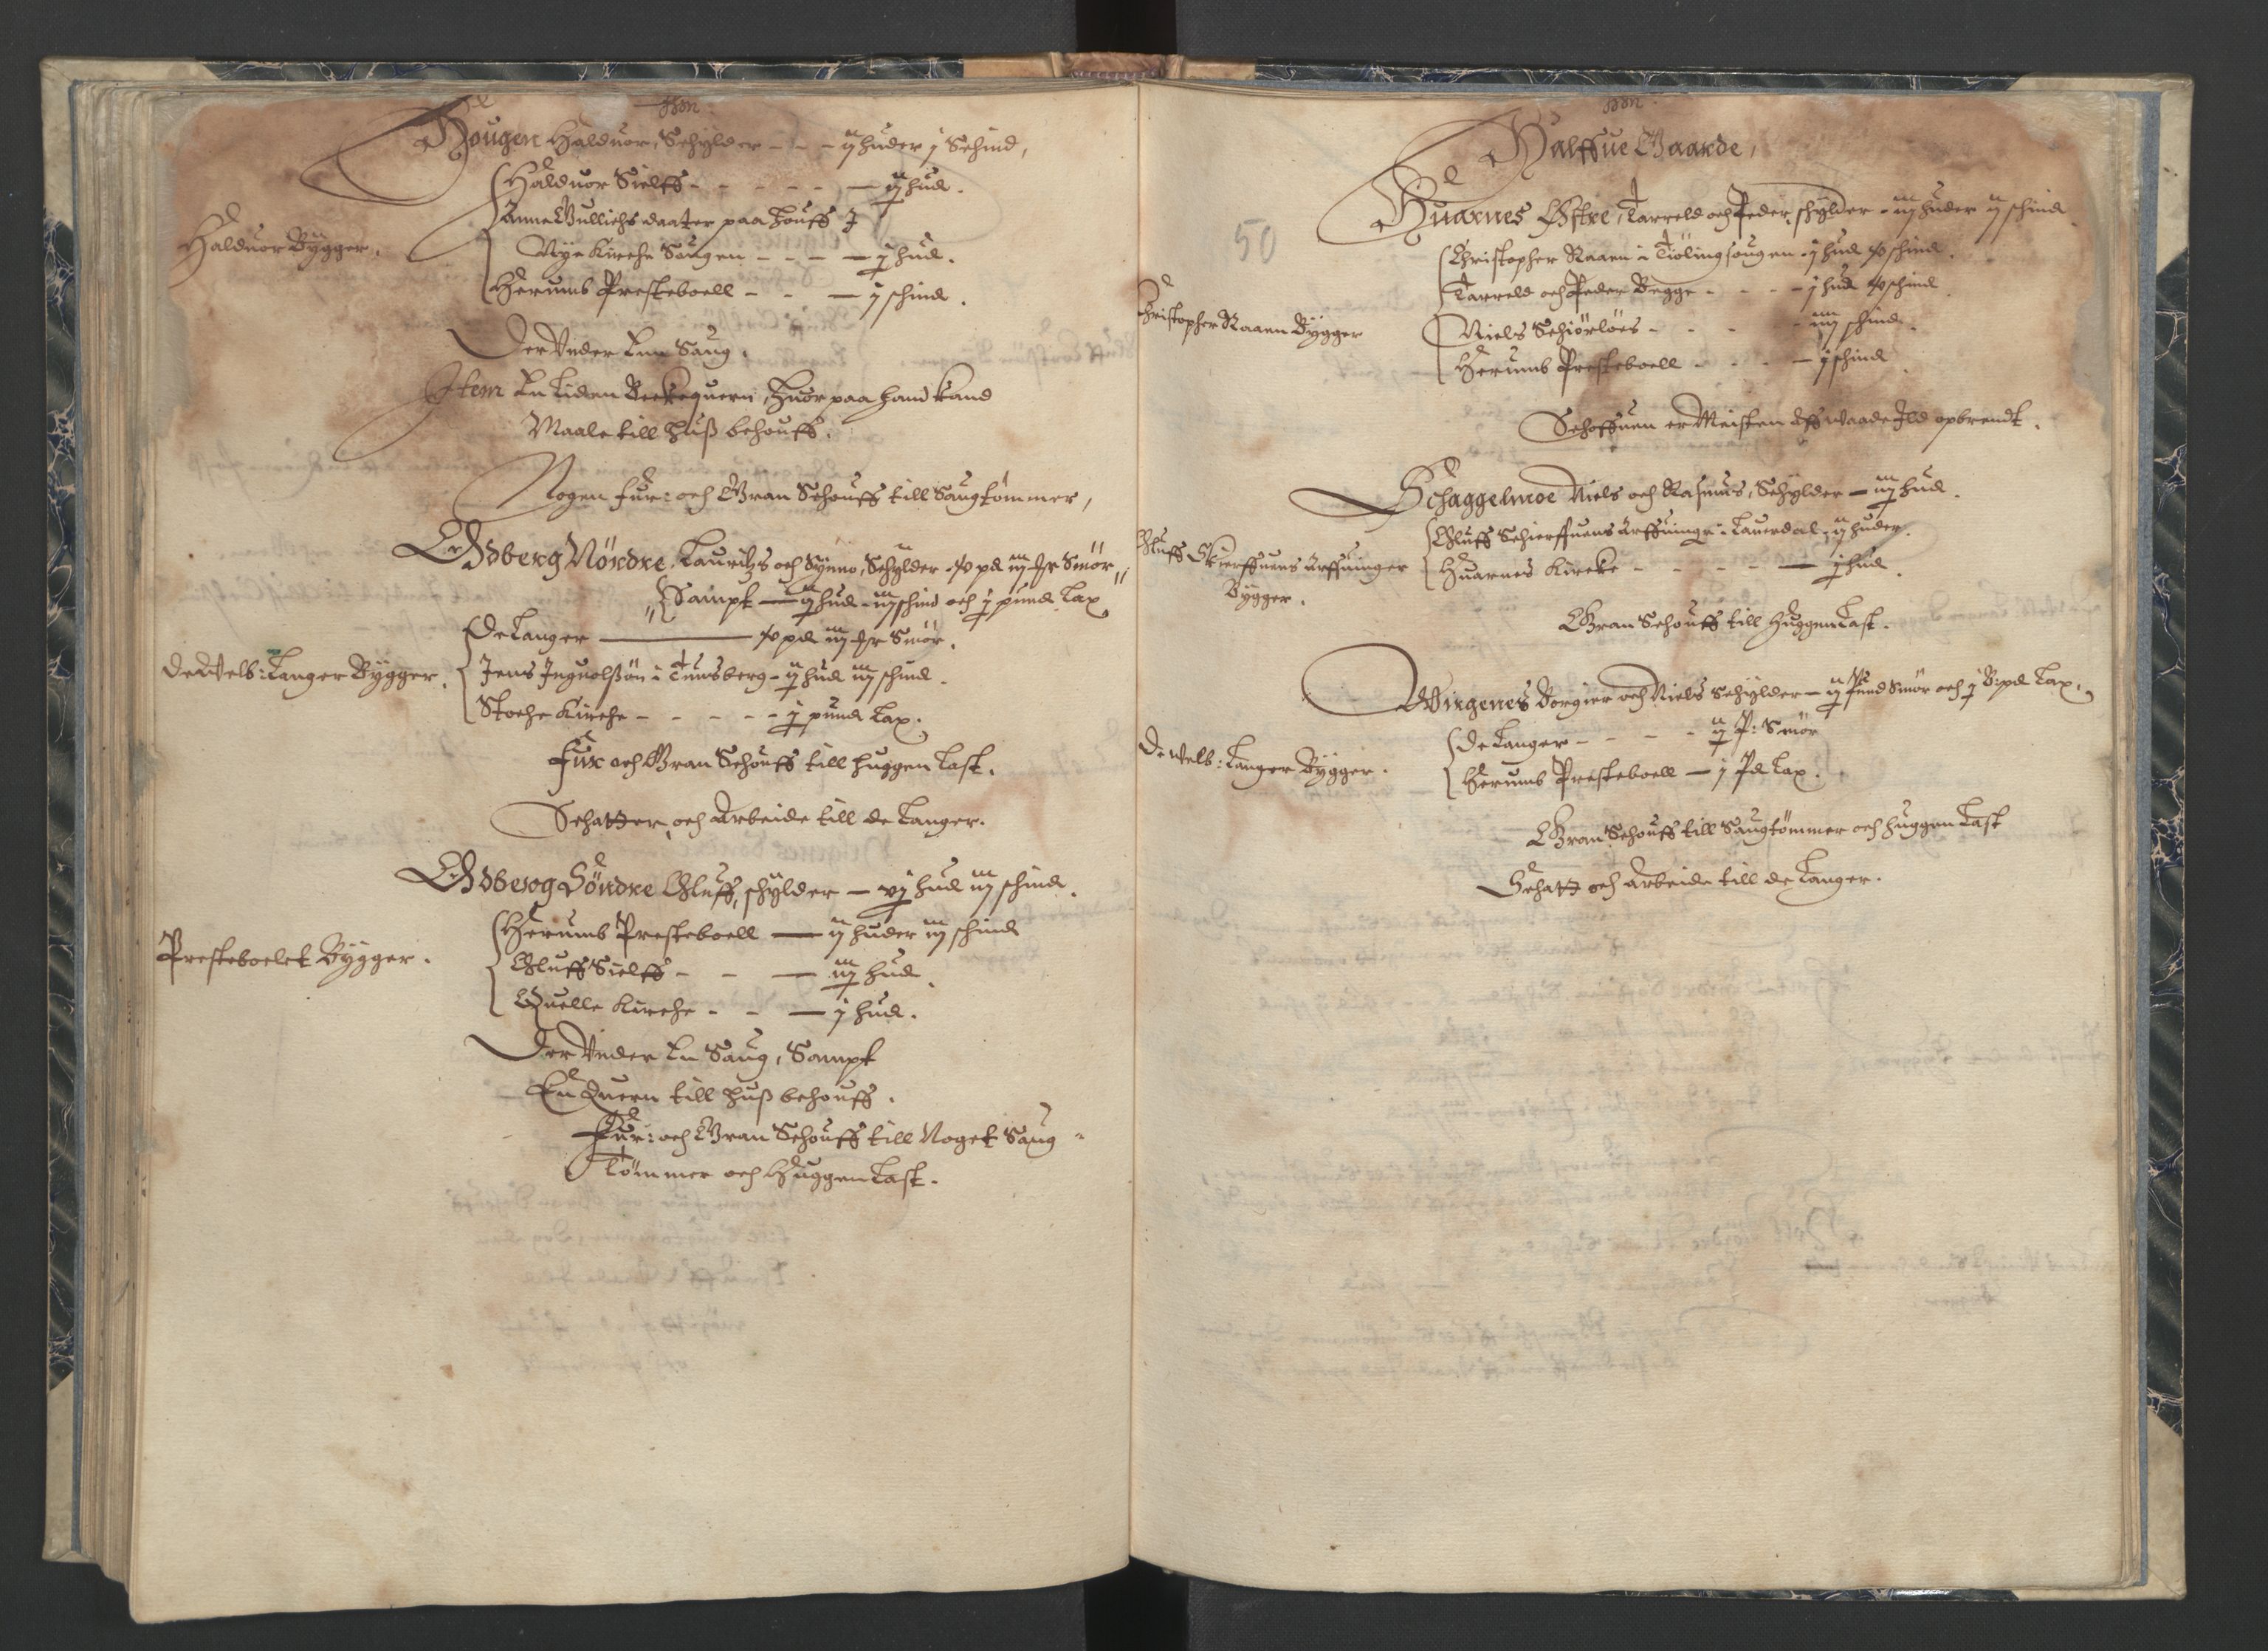 Hougen Halduor, Schylder - - - ij huder j Schind,
Halduor Sielff - - - - - - ij hud.
Anne Gullichs daater paa Touff I
Nye Kirche Sougen - - - - j hud.
Herumb Presteboell - - - j schind.
Halduor Bygger.
Der Vnder Enn Saug.
Item En Liden Beckequern, Huor paa hand kand
Maale till Huß behouff.
Nogen Fur: och Gran Schouff till Saugtömmer,
Odberg Nördre, Lauritzs och Synno, Schylder ½ pd iij ... Smör
Sampt — ij hud - iij schind och j pund Lax
De Langer ——— ½ pd iij ... Smör.
Jens Inguolsøn i Tunsberg - ij hud iij schind.
Stoche Kirche - - - - - j pund Lax.
De Velb: Langer Bygger.
Fur och Gran Schouff till huggen Last.
Schatter och Arbeide till de Langer.
Odberg Söndre Oluff, schylder — vj hud iij schind.
Herumb Presteboell — ij huder iij schind
Oluff Sielff - - — iij hud.
Quelle Kirche - - — j hud.
Presteboelet Bygger.
Der Vnder En Saug, Sampt
En Quern till Huß behouff.
Fur: och Gran Schouff till Noget Saug
Tömmer och Huggen Last.
50
Halffue Gaarde,
Huarnes Östre, Tarreld och Peder, schylder - iij huder ij schind
Christopher Raaen i Tiölingsougen - j hud ½ schind.
Tarreld och Peder Begge - - - - j hud ½ schind
Niels Schiörlöes - - - - iiij schind.
Herumb Presteboell - - - — j schind
Christopher Raaen Bygger
Schoffuen er Meisten Aff Waade Ild opbrendt.
Schaggelmoe Niels och Rasmus, Schylder — iij hud.
Oluff Schierffuens Arffuinge i Lauerdal, ij huder.
Huarnes Kircke - - - - — j hud.
Oluff Skierffuens Arffuinger
Bygger.
Gran Schouff till Huggen Last.
Wirgenes Borgier och Niels Schylder — ij Pund Smör och j B:pd Lax.
De Langer - - - - ij P: Smör
Herumb Presteboell — j Pd Lax.
De Velb: Langer Bygger.
Gran Schouff till Saugtömmer och huggen Last
Schatt och Arbeide till de Langer.